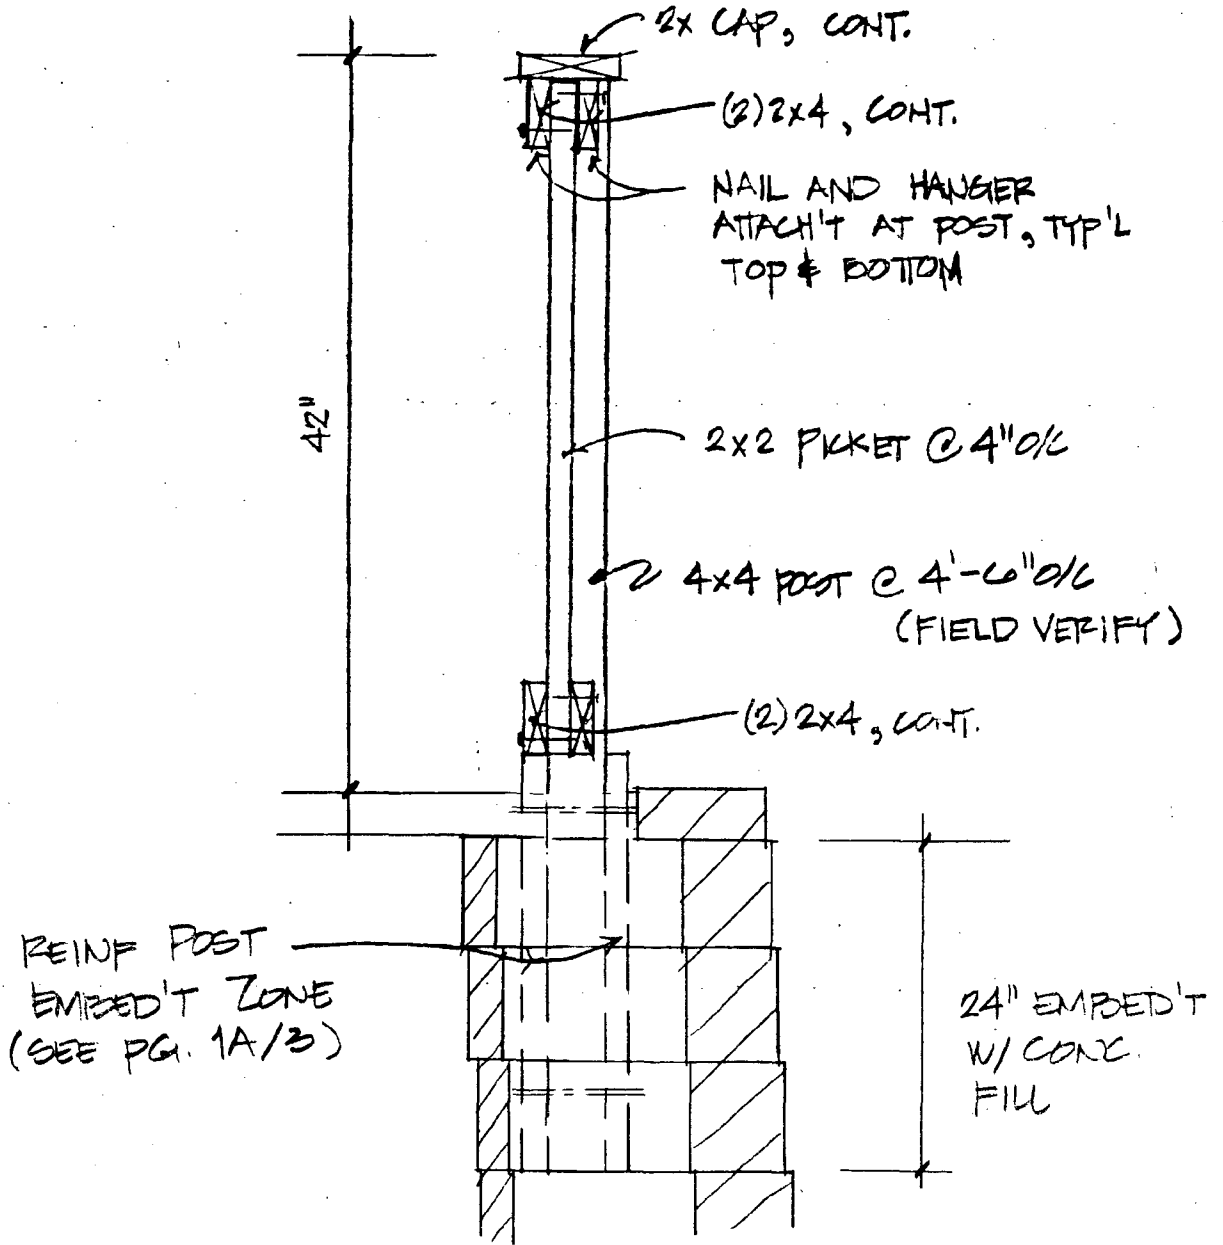 2x CAP, CONT.
(2) 2x4, CONT.
NAIL AND HANGER
ATTACH'T AT POST, TYP'L
TOP & BOTTOM
42"
2x2 PICKET @ 4" O/C
4x4 POST @ 4'-6" O/C
(FIELD VERIFY)
(2) 2x4, CONT.
REINF POST
EMBED'T ZONE
(SEE PG. 1A/3)
24" EMBED'T
W/ CONC.
FILL